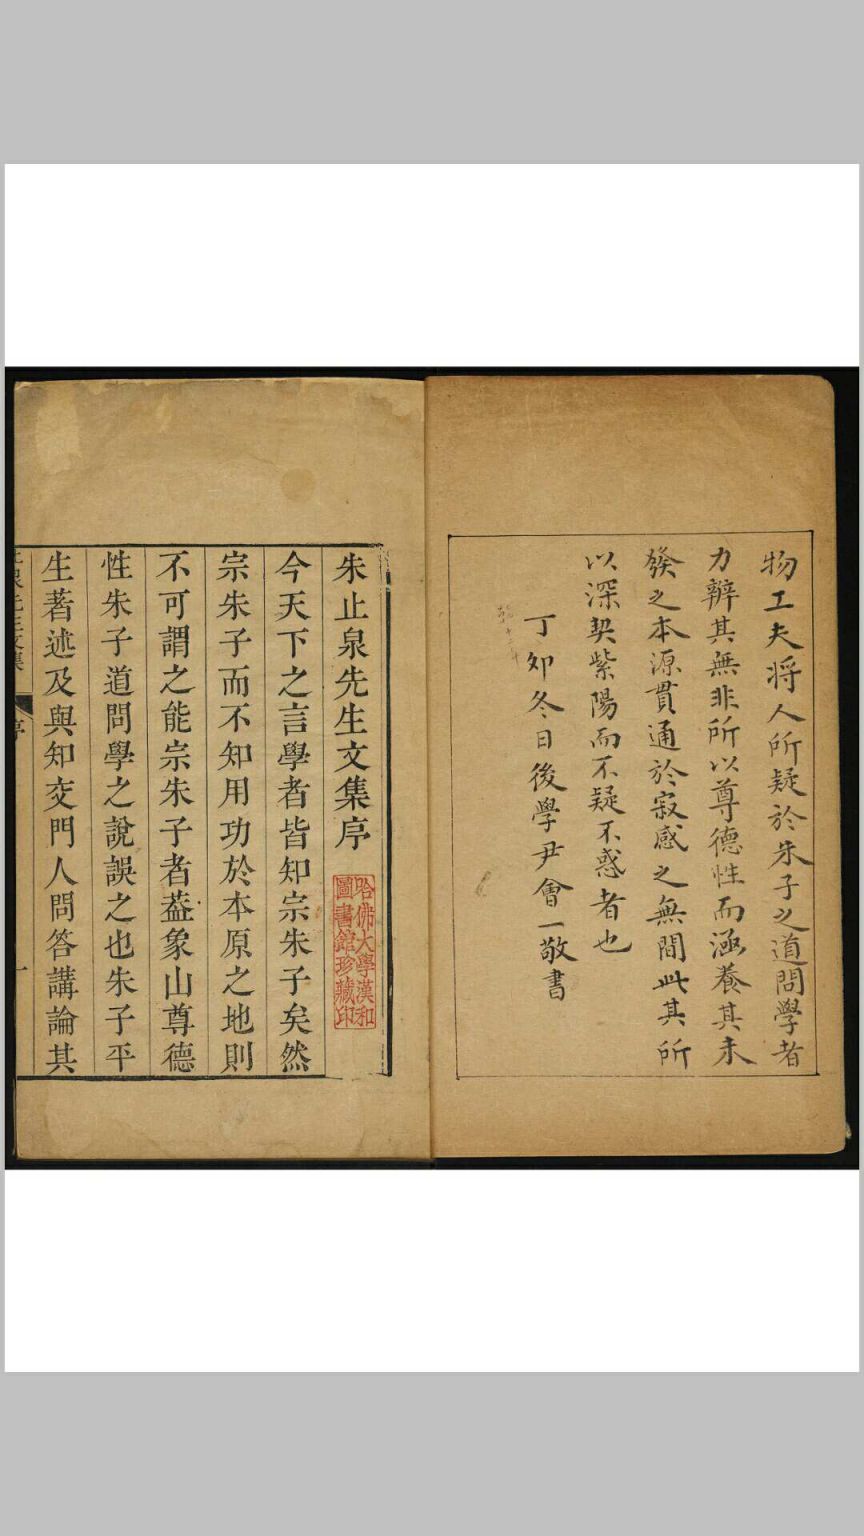 物工夫将人所疑於朱子之道問學者
力辨其無非所以尊德性而涵養其未
發之本源貫通於寂感之無間此其所
以深契紫陽而不疑不惑者也
丁卯冬日後學尹會一敬書
朱止泉先生文集序
哈佛大學漢和
圖書館珍藏印
今天下之言學者皆知宗朱子矣然
宗朱子而不知用功於本原之地則
不可謂之能宗朱子者葢象山尊德
性朱子道問學之說誤之也朱子平
生著述及與知交門人問答講論其
止泉先生文集
序
一